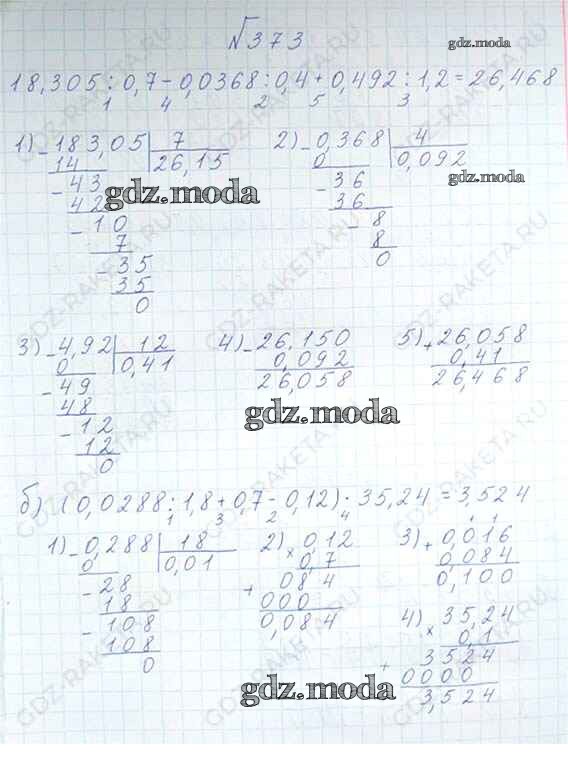 №373
gdz.moda
18,305:0,7-0,0368:0,4+0,492:1,2=26,468
1 4 2 5 3
1) -183,05 | 7
14 26,15
-43
42
-10
7
-35
35
0
2) -0,368 | 4
0 0,092
-36
36
-8
8
0
gdz.moda
gdz.moda
3) -4,92 | 12
0 0,41
-49
48
-12
12
0
4) -26,150
0,092
26,058
5) +26,058
0,41
26,468
gdz.moda
б) (0,0288:1,8+0,7·0,12)·35,24=3,524
1 3 2 4
1) -0,288 | 18
0 0,01
-28
18
-108
108
0
2) ×0,12
0,7
+084
000
0,084
3) +0,016
0,084
0,100
4) ×35,24
0,1
+3524
0000
3,524
gdz.moda
GDZ-RAKETA.RU